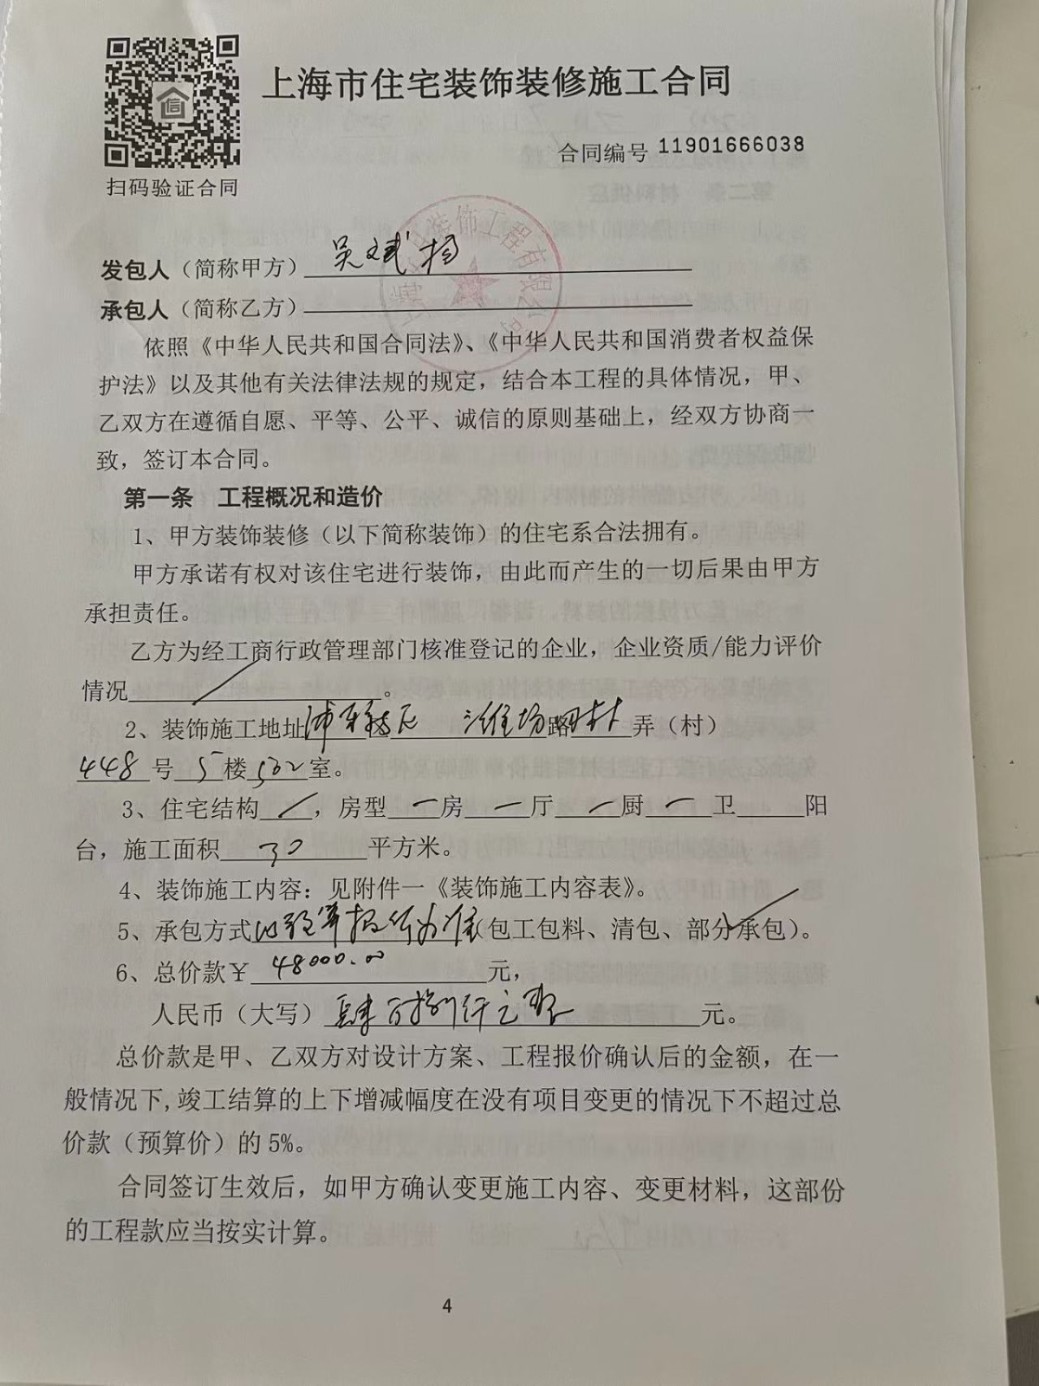 上海市住宅装饰装修施工合同
合同编号 11901666038
扫码验证合同
发包人（简称甲方）吴斌扬
承包人（简称乙方）
装饰工程有限公司
依照《中华人民共和国合同法》、《中华人民共和国消费者权益保
护法》以及其他有关法律法规的规定，结合本工程的具体情况，甲、
乙双方在遵循自愿、平等、公平、诚信的原则基础上，经双方协商一
致，签订本合同。
第一条 工程概况和造价
1、甲方装饰装修（以下简称装饰）的住宅系合法拥有。
甲方承诺有权对该住宅进行装饰，由此而产生的一切后果由甲方
承担责任。
乙方为经工商行政管理部门核准登记的企业，企业资质/能力评价
情况 。
2、装饰施工地址浦东新区 潍坊路 弄（村）
448 号 5 楼 502 室。
3、住宅结构 ，房型 一 房 一 厅 一 厨 一 卫 阳
台，施工面积 30 平方米。
4、装饰施工内容：见附件一《装饰施工内容表》。
5、承包方式以预算报价为准（包工包料、清包、部分承包）。
6、总价款￥ 48000.00 元，
人民币（大写）肆万捌仟元整 元。
总价款是甲、乙双方对设计方案、工程报价确认后的金额，在一
般情况下,竣工结算的上下增减幅度在没有项目变更的情况下不超过总
价款（预算价）的 5%。
合同签订生效后，如甲方确认变更施工内容、变更材料，这部份
的工程款应当按实计算。
4